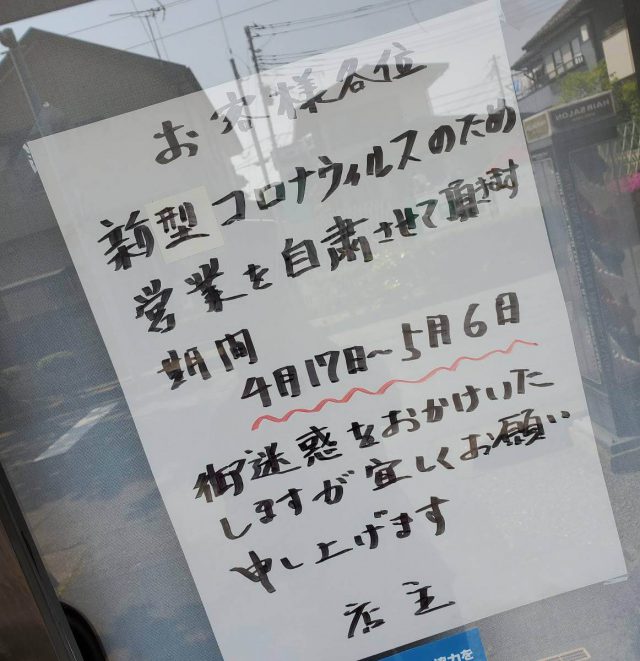 お客様各位
新型コロナウィルスのため
営業を自粛させて頂きます
期間
4月17日〜5月6日
御迷惑をおかけいた
しますが宜しくお願い
申し上げます
店主
HAIR SALON
協力を